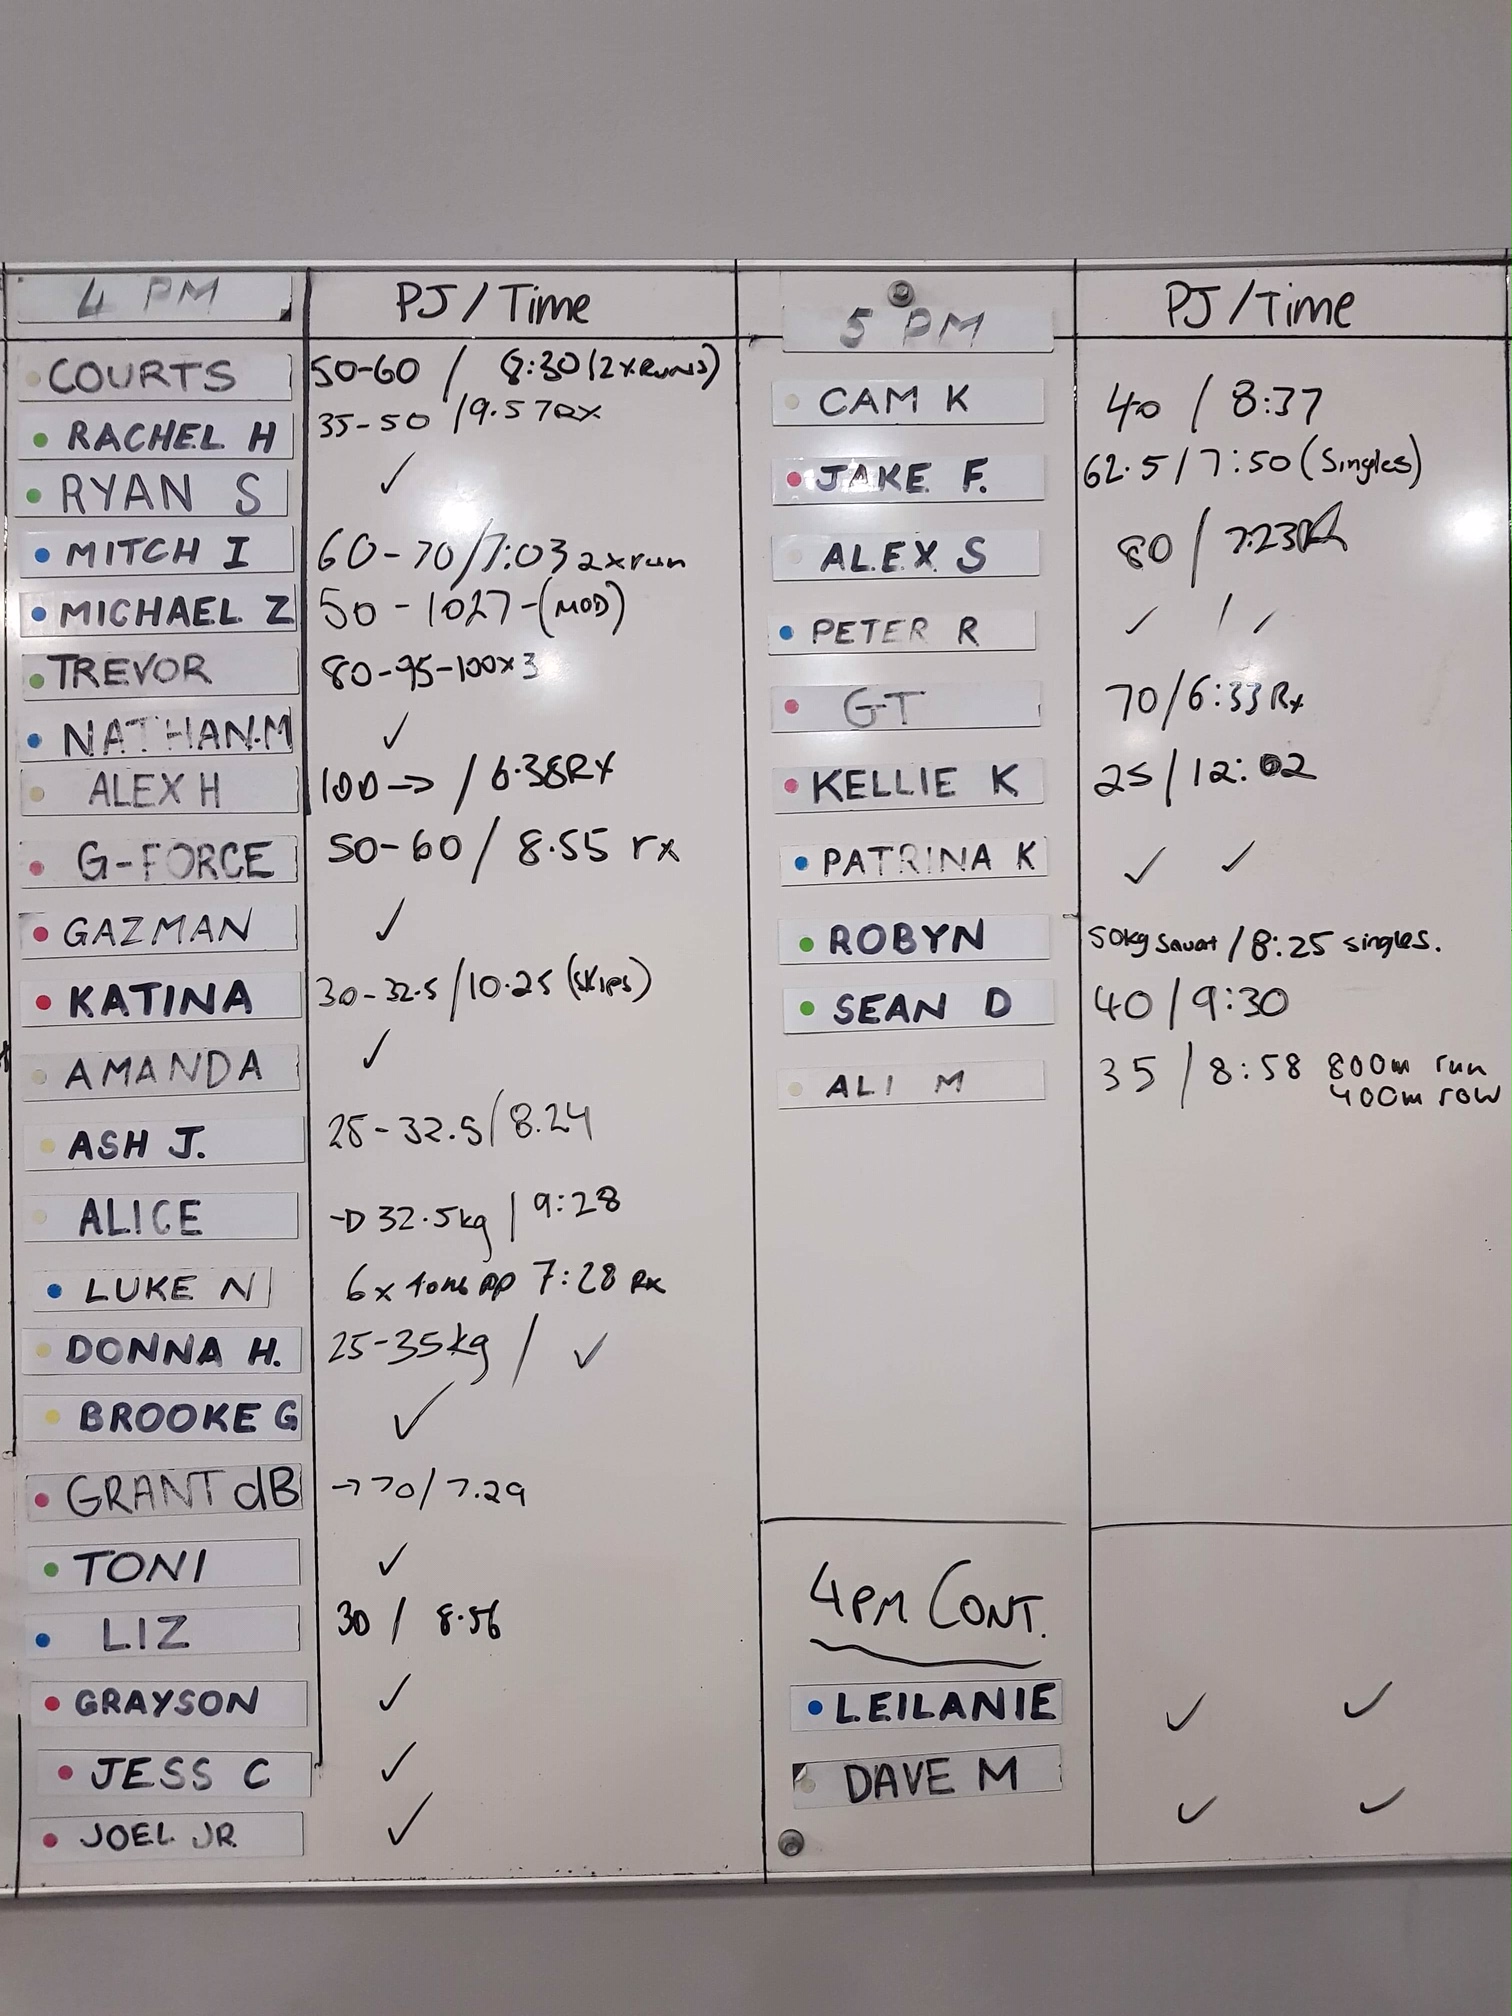 4 PM PJ/Time
COURTS 50-60 / 8:30 (2xRUNS)
RACHEL H 35-50 / 9.57 RX
RYAN S ✓
MITCH I 60-70/7:03 2xrun
MICHAEL Z 50-1027-(MOD)
TREVOR 80-95-100x3
NATHAN.M ✓
ALEX H 100→ / 6.38RX
G-FORCE 50-60 / 8.55 rx
GAZMAN ✓
KATINA 30-32.5/10.25 (SKIPS)
AMANDA ✓
ASH J. 25-32.5/8.24
ALICE 32.5kg / 9:28
LUKE N 6x 7:28 Rx
DONNA H. 25-35kg / ✓
BROOKE G ✓
GRANT dB →70/7.29
TONI ✓
LIZ 30 / 8.56
GRAYSON ✓
JESS C ✓
JOEL JR ✓
5 PM PJ/Time
CAM K 40 / 8:37
JAKE F. 62.5/7:50 (Singles)
ALEX S 80 / 7:23
PETER R ✓ / ✓
GT 70/6:33 Rx
KELLIE K 25/12:02
PATRINA K ✓ ✓
ROBYN 50kg Squat / 8:25 singles.
SEAN D 40/9:30
ALI M 35 / 8:58 800m run
400m row
4PM CONT.
LEILANIE ✓ ✓
DAVE M ✓ ✓